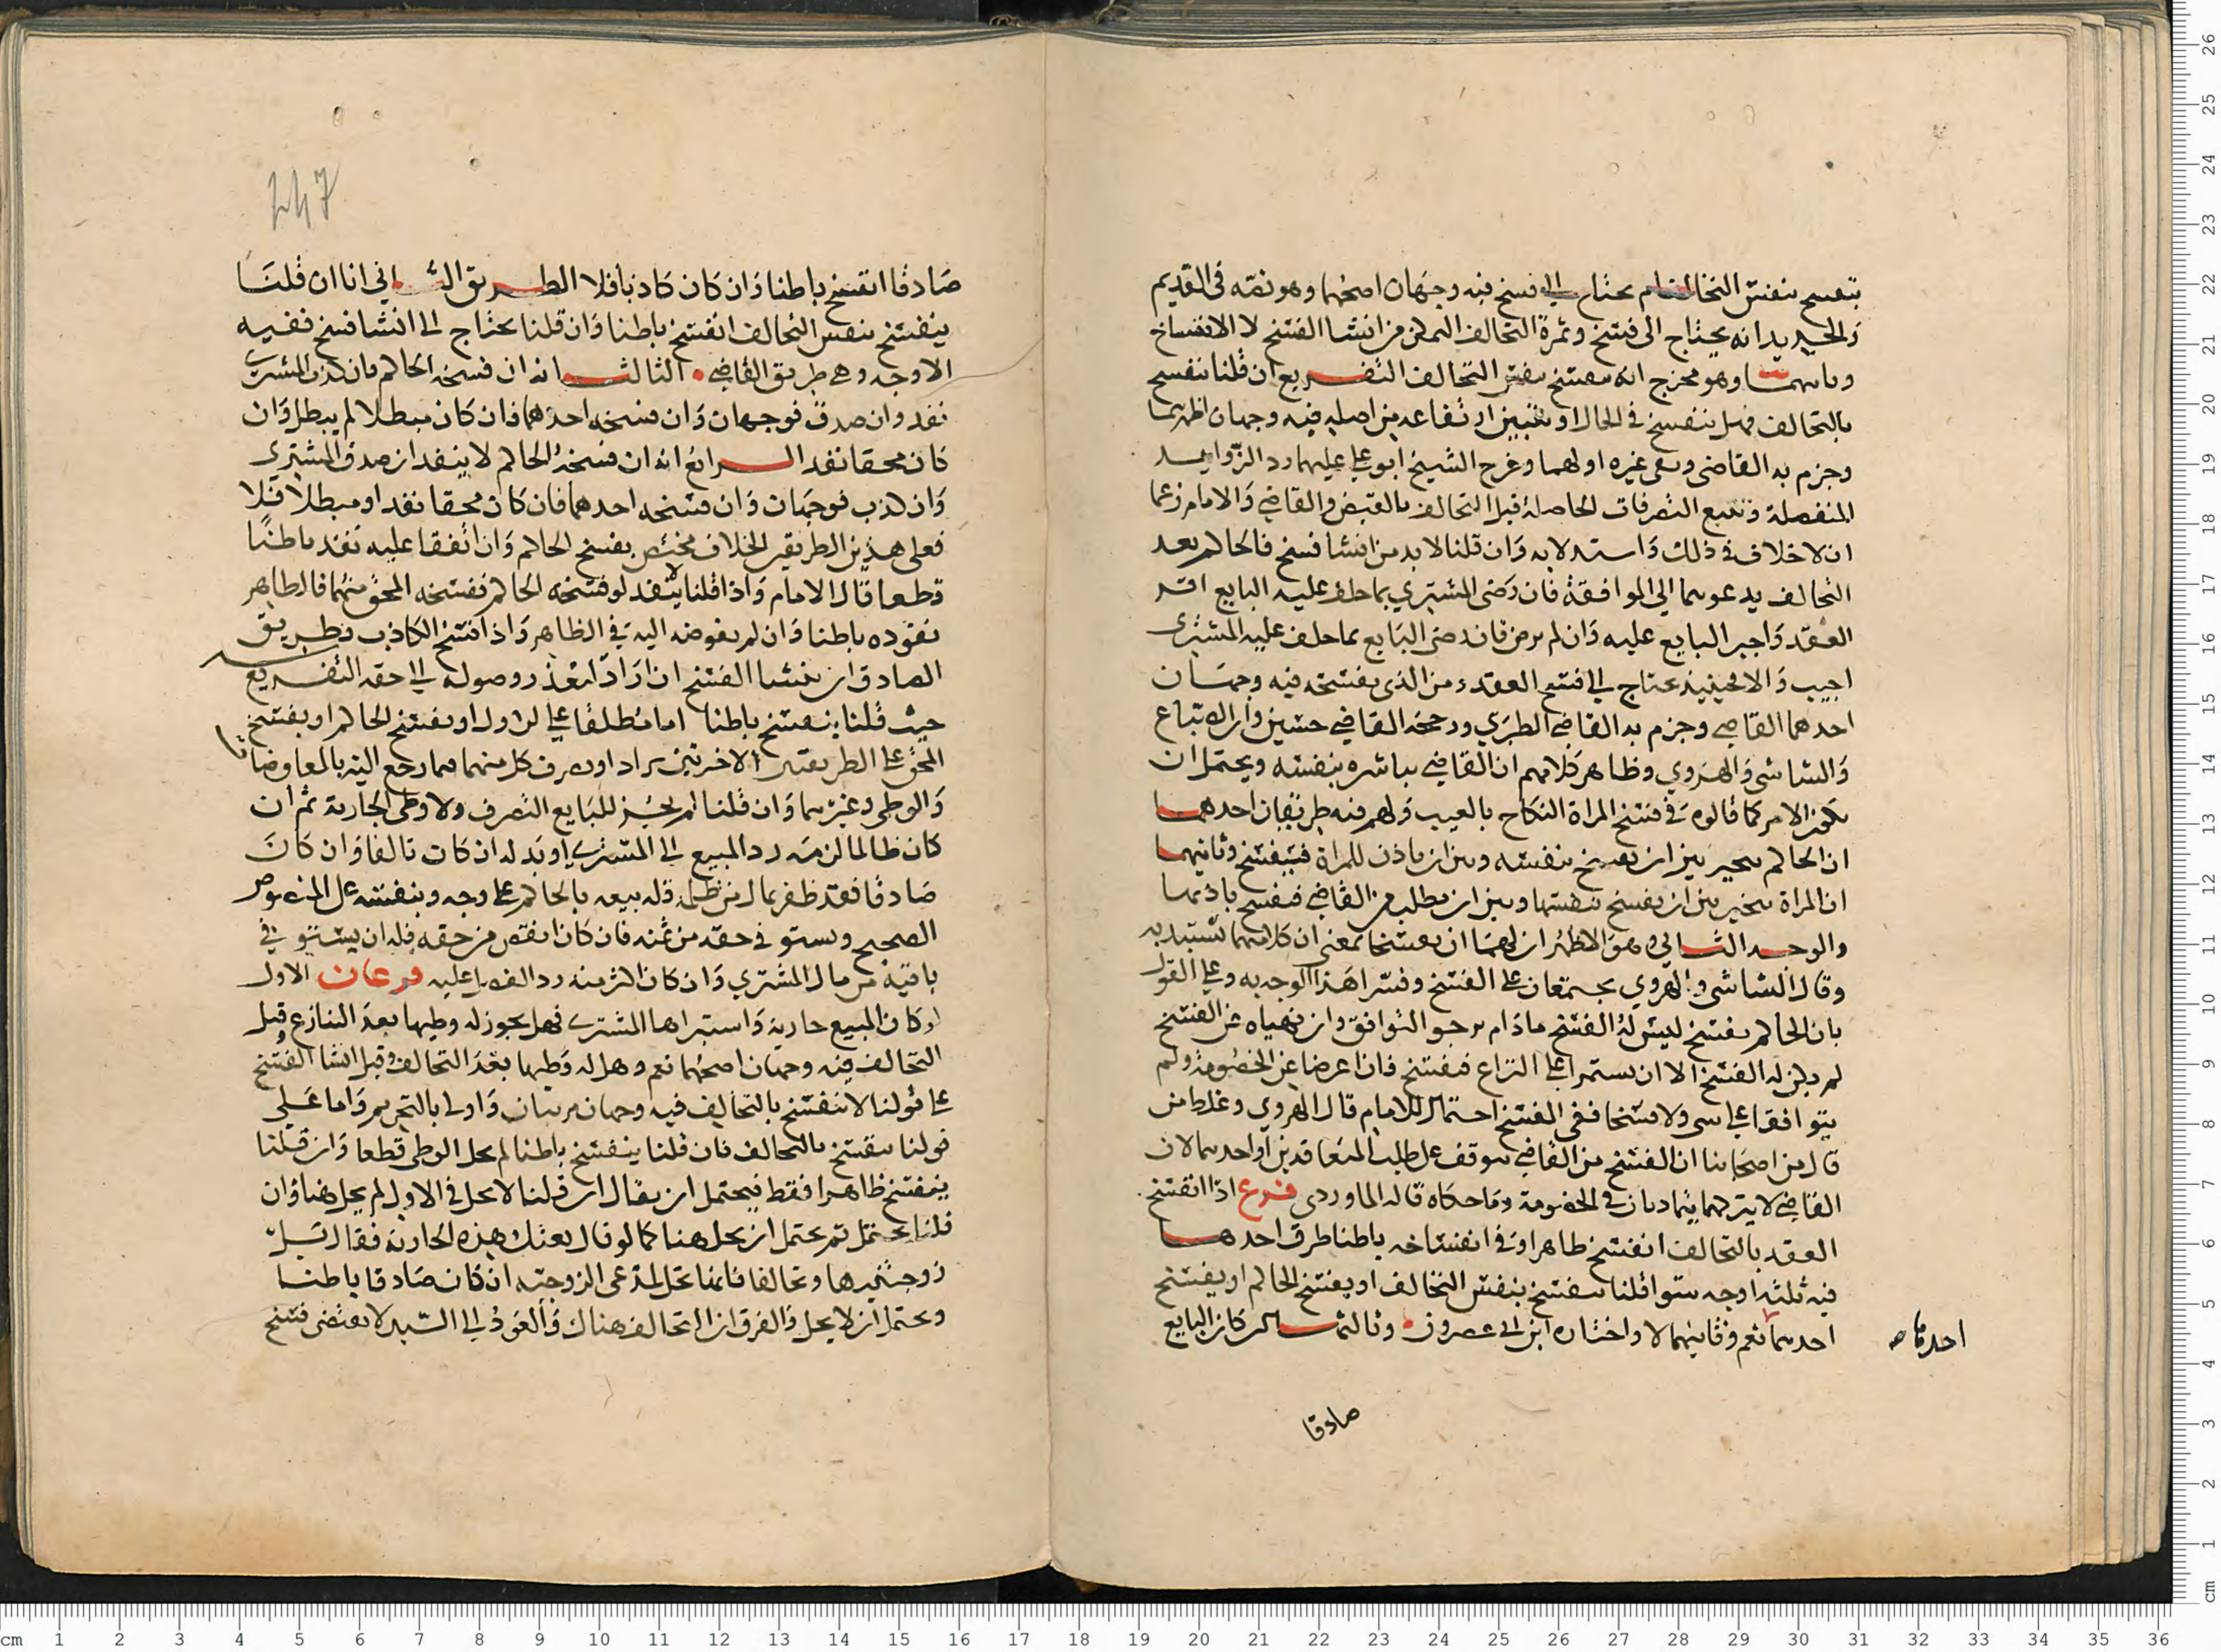 ينفسخ بنفس التخالف ام يحتاج الى فسخ فيه وجهان اصحهما وهو نصه في القديم
والجديد انه يحتاج الى فسخ وثمرة التحالف التمكن من انشا الفسخ لا الانفساخ
وثانيهما وهو مخرج انه ينفسخ بنفس التحالف التفريع ان قلنا ينفسخ
بالتحالف فهل ينفسخ في الحال او نتبين ارتفاعه من اصله فيه وجهان اظهرهما
وجزم به القاضي وبعض غيره اولهما وفرع الشيخ ابو علي عليهما رد الزوايد
المنفصلة وتتبع التصرفات الحاصلة قبل التحالف بالنقض والقاضي والامام زعما
ان لا خلاف في ذلك واستدلا به وان قلنا لا بد من انشا فسخ فالحاكم بعد
التحالف يدعوهما الى الموافقة فان رضى المشتري بما حلف عليه البايع اقر
العقد واجبر البايع عليه وان لم يرض فان رضى البايع بما حلف عليه المشترى
اجيب والا فحينيذ يحتاج الى فسخ العقد ومن الذى يفسخه فيه وجهان
احدهما القاضي وجزم به القاضي الطبري ورجحه القاضي حسين والاتباع
والشاشى والهروي وظاهر كلامهم ان القاضي يباشره بنفسه ويحتمل ان
يكون الامر كما قالوه في فسخ المراة النكاح بالعيب ولهم فيه طريقان احدهما
ان الحاكم يتخير بين ان يفسخ بنفسه وبين ان ياذن للمراة فتفسخ وثانيهما
ان المراة تتخير بين ان تفسخ بنفسها وبين ان تطلب من القاضي فيفسخ باذنها
والوجه الثاني وهو الاظهر ان لهما ان يفسخا بمعنى ان كلا منهما يستبد به
وقال الشاشى والهروي يجتمعان على الفسخ وفسرا هذا الوجه به وعلى القول
بان الحاكم يفسخ ليس له الفسخ ما دام يرجو التوافق وان نهياه عن الفسخ
لم يكن له الفسخ الا ان يستمرا على النزاع فيفسخ فان اعرضا عن الخصومة ولم
يتوافقا على شى ولا فسخا ففى الفسخ احتمال للامام قال الهروي وغلط من
قال من اصحابنا ان الفسخ من القاضي يتوقف على طلب المتعاقدين او احدهما لان
القاضي لا يتركهما يتماديان في الخصومة وما حكاه قاله الماوردى فرع اذا انفسخ
العقد بالتحالف انفسخ ظاهرا وفي انفساخه باطنا طرق احدها
فيه ثلثه اوجه سوا قلنا ينفسخ بنفس التحالف او يفسخ الحاكم او يفسخ
احدهما نعم وثانيهما لا واختاره ابن ابي عصرون وثالثها ان كان البايع
احدها صح
صادقا
247
صادقا انفسخ باطنا وان كان كاذبا فلا الطريق الثاني انا ان قلنا
ينفسخ بنفس التحالف انفسخ باطنا وان قلنا يحتاج الى انشا فسخ ففيه
الاوجه وهي طريق القاضي الثالث انه ان فسخه الحاكم فان كذب المشتري
نفد وان صدق فوجهان وان فسخه احدهما فان كان مبطلا لم يبطل وان
كان محقا نفد الرابع انه ان فسخه الحاكم لا ينفد ان صدق المشتري
وان كذب فوجهان وان فسخه احدهما فان كان محقا نفد او مبطلا فلا
فعلى هذين الطريقين الخلاف مختص بفسخ الحاكم وان اتفقا عليه نفد باطنا
قطعا قال الامام واذا قلنا لا ينفد لو فسخه الحاكم ففسخه المحق منهما فالظاهر
نفوده باطنا وان لم يفوضه اليه في الظاهر واذا فسخ الكاذب فطريق
الصادق ان ينشا الفسخ ان اراد لتعذر وصوله الى حقه التفريع
حيث قلنا ينفسخ باطنا اما مطلقا على الاول او يفسخ الحاكم او يفسخ
المحق على الطريقتين الاخرتين ترادا وتصرف كل منهما فيما رجع اليه بالمعاوضات
والوطى وغيرهما وان قلنا لم يجز للبايع التصرف ولا وطى الجارية ثم ان
كان ظالما لزمه رد المبيع الى المشترى او بدله ان كان تالفا وان كان
صادقا فقد ظفر بمال من ظلمه فله بيعه بالحاكم على وجه وبنفسه على المنصوص
الصحيح ويستوفي حقه من ثمنه فان كان انقص من حقه فله ان يستوفي
باقيه من مال المشتري وان كان اكثر منه رد الفضل عليه فرعان الاول
لو كان المبيع جارية واستبراها المشترى فهل يجوز له وطيها بعد التنازع وقبل
التحالف فيه وجهان اصحهما نعم وهل له وطيها بعد التحالف وقبل انشا الفسخ
على قولنا لا تنفسخ بالتحالف فيه وجهان مرتبان واولى بالتحريم واما على
قولنا ينفسخ بالتحالف فان قلنا ينفسخ باطنا لم يحل الوطى قطعا وان قلنا
ينفسخ ظاهرا فقط فيحتمل ان يقال ان قلنا لا يحل في الاول لم يحل هنا وان
قلنا يحتمل ثم يحتمل ان يحل هنا كما لو قال بعتك هذه الجارية فقال بل
زوجتنيها وتحالفا فانها تحل لمدعى الزوجيه ان كان صادقا باطنا
ويحتمل ان لا يحل والفرق ان التحالف هناك والعود الى السيد لا يقتضى فسخ